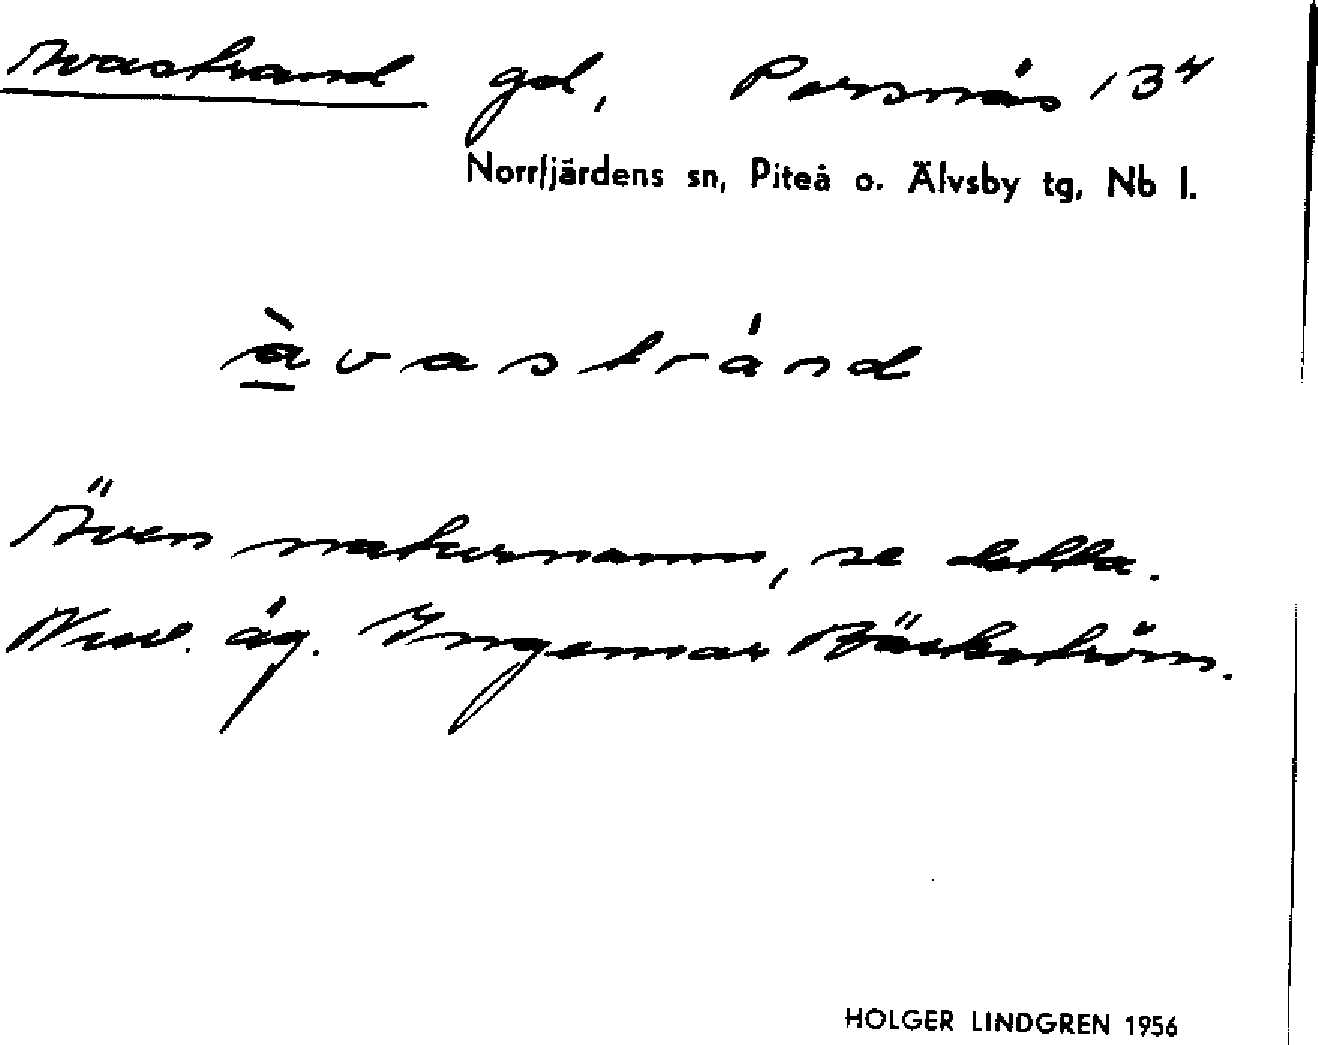 Avastrand gd, Porsnäs 13⁴
Norrfjärdens sn, Piteå o. Älvsby tg, Nb l.
àvastránd
Även naturnamn, se detta.
Nuv. äg. Ingemar Bäckström.
HOLGER LINDGREN 1956